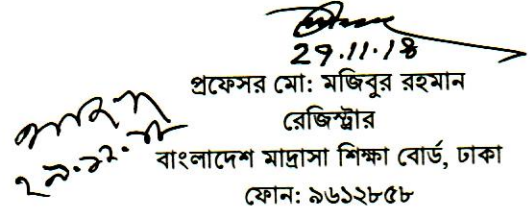 29.11.18
প্রফেসর মো: মজিবুর রহমান
রেজিস্ট্রার
বাংলাদেশ মাদ্রাসা শিক্ষা বোর্ড, ঢাকা
ফোন: ৯৬১২৮৫৮